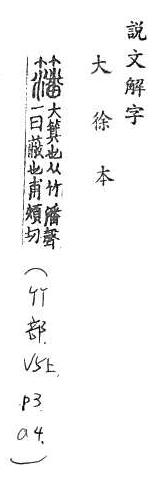 說文解字
大徐本
籓大箕也从竹潘聲
一曰蔽也甫煩切
(竹部 V5上, p3 a4.)